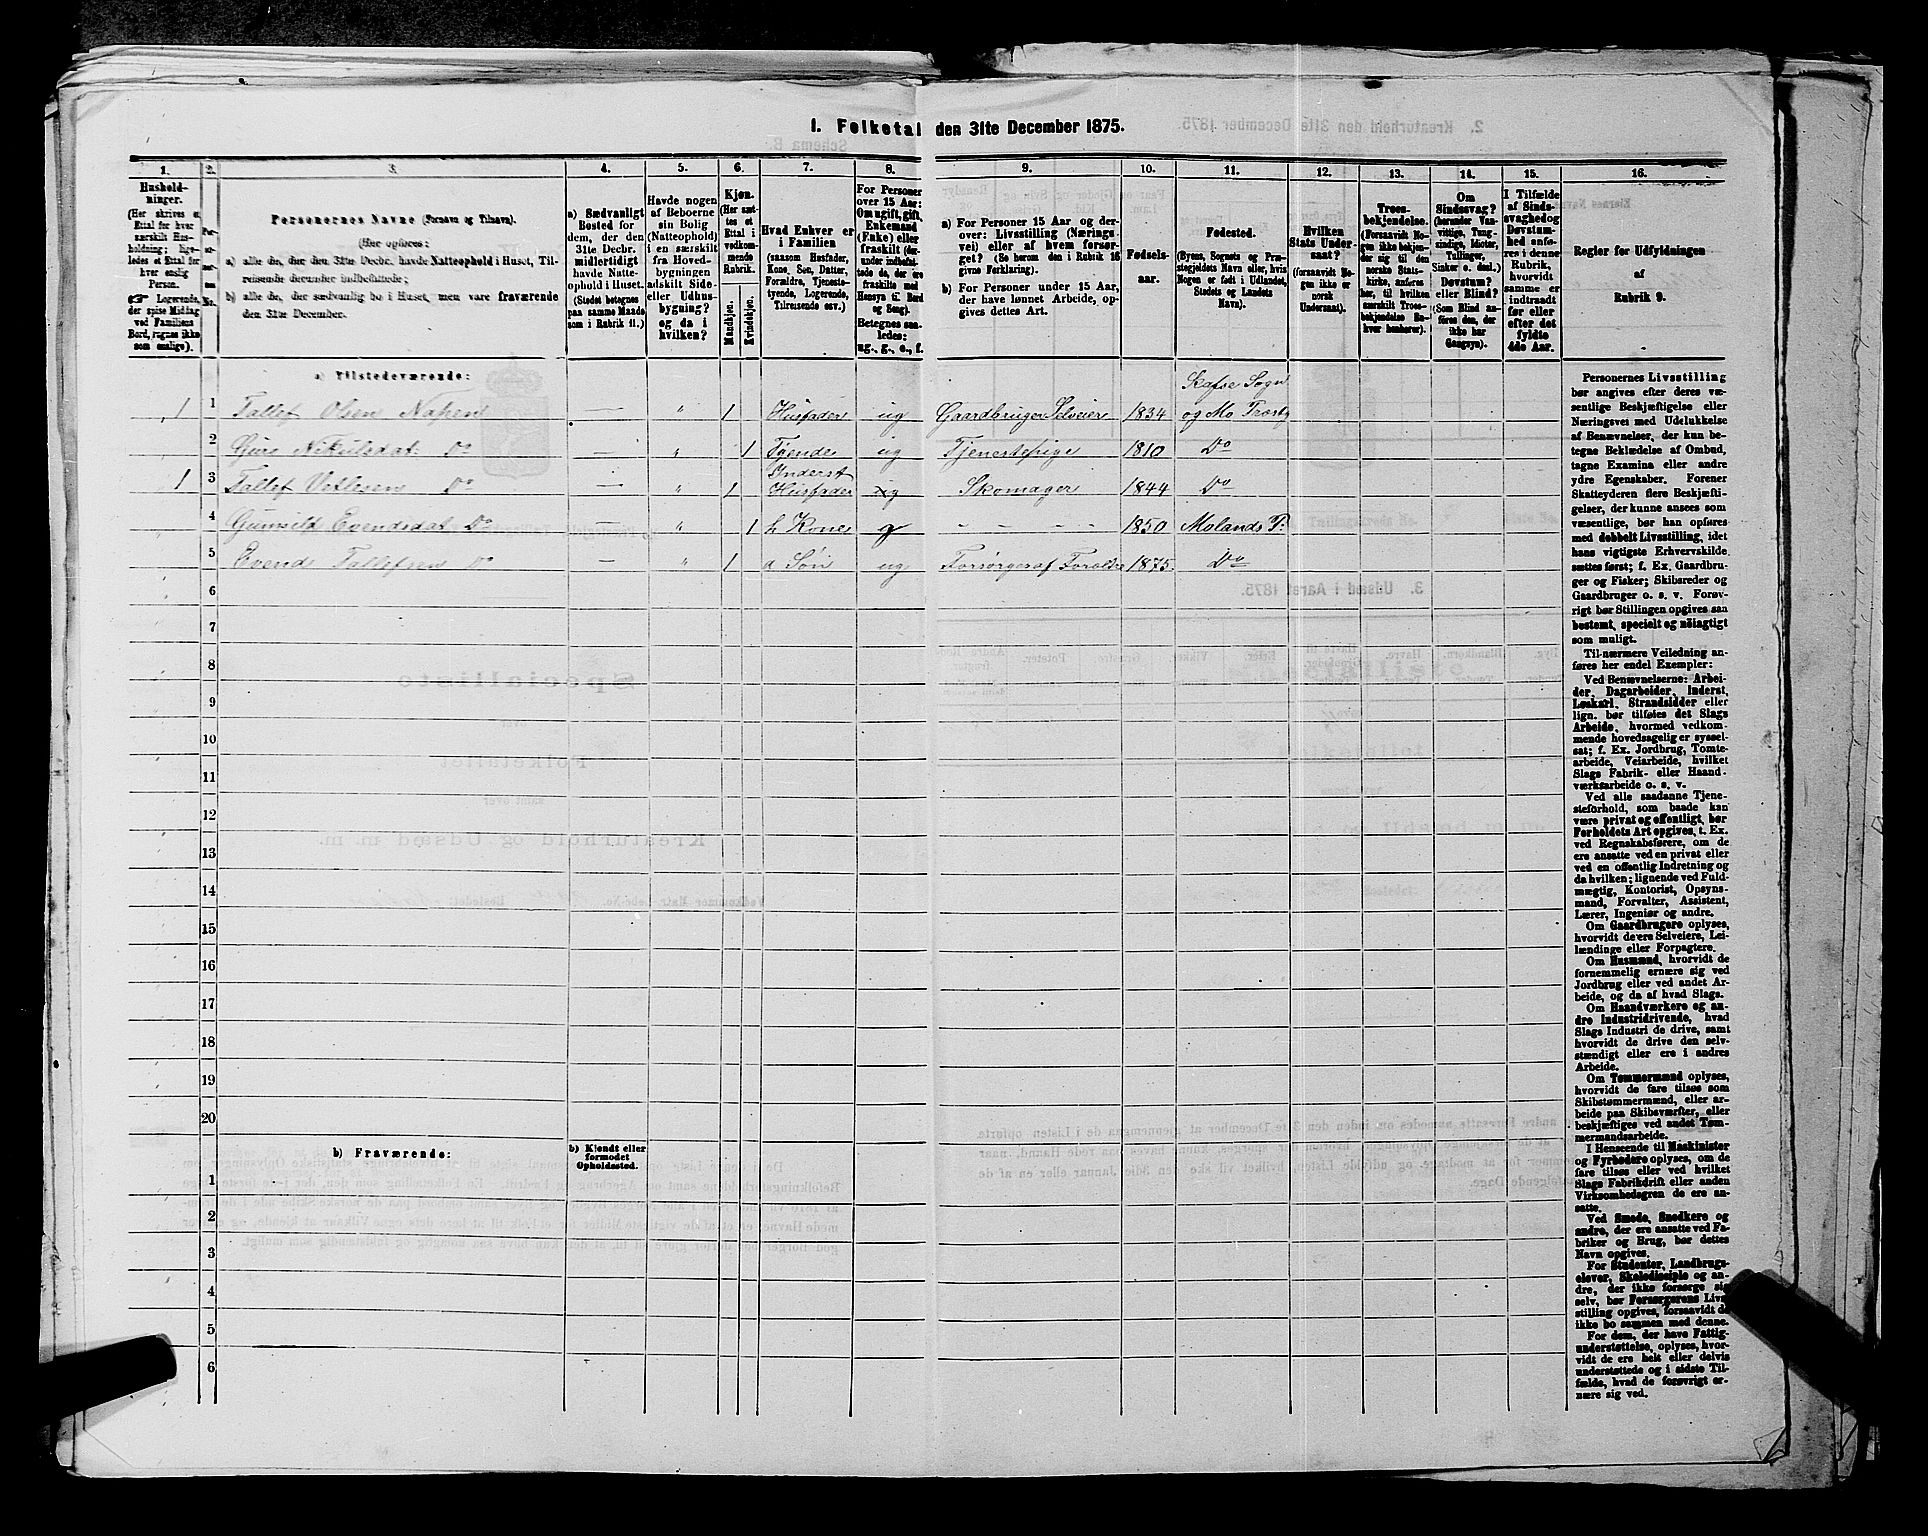 1. Folketal den 31te December 1875.
1. 2. 3. 4. 5. 6. 7. 8. 9. 10. 11. 12. 13. 14. 15. 16.
Hushold-
ninger.
(Her skrives et
Ettal for hver
særskilt Hus-
holdning; lige-
ledes et Ettal for
hver enslig
Person.
☞ Logerende,
der spise Middag
ved Familiens
Bord, regnes ikke
som enslige).
Personernes Navne (Fornavn og Tilnavn).
(Her opføres:
a) alle de, der den 31te Decbr. havde Natteophold i Huset, Til-
reisende derunder indbefattede;
b) alle de, der sædvanlig bo i Huset, men vare fraværende
den 31te December.
a) Sædvanligt
Bosted for
dem, der den
31te Decbr.
midlertidigt
havde Natte-
ophold i Huset.
(Stedet betegnes
paa samme Maade
som i Rubrik 11.)
Havde nogen
af Beboerne
sin Bolig
(Natteophold)
i en særskilt
fra Hoved-
bygningen
adskilt Side-
eller Udhus-
bygning?
og da i
hvilken?
Kjøn.
(Her sæt-
tes et
Ettal i
vedkom-
mende
Rubrik.
Mandkjøn.
Kvindekjøn.
Hvad Enhver er
i Familien
(saasom Husfader,
Kone, Søn, Datter,
Forældre, Tjeneste-
tyende, Logerende,
Tilreisende osv.)
For Personer
over 15 Aar:
Om ugift, gift,
Enkemand
(Enke) eller
fraskilt (der-
under indbefat-
tede de, der ere
fraskilte med
Hensyn til Bord
og Seng).
Betegnes saa-
ledes:
ug., g., e., f.
a) For Personer 15 Aar og der-
over: Livsstilling (Nærings-
vei) eller af hvem forsør-
get? (Se herom den i Rubrik 16
givne Forklaring).
b) For Personer under 15 Aar,
der have lønnet Arbeide, op-
gives dettes Art.
Fødsels-
aar.
Fødested.
(Byens, Sognets og Præ-
stegjeldets Navn eller, hvis
Nogen er født i Udlandet,
Stedets og Landets
Navn).
Hvilken
Stats Under-
saat?
(forsaavidt No-
gen ikke er
norsk
Undersaat).
Troes-
bekjendelse.
(Forsaavidt No-
gen ikke bekjen-
der sig til den
norske Stats-
kirke, anføres
her, til hvilken
særskilt Troes-
bekjendelse En-
hver henhører).
Om
Sindssvag?
(Derunder Van-
vittige, Tung-
sindige, Idioter,
Tullinger,
Sinker o. desl.)
Døvstum?
eller Blind?
(Som Blind an-
føres den, der
ikke har
Gangsyn).
I Tilfælde
af Sinds-
svaghed og
Døvstum-
hed anfø-
res i denne
Rubrik,
hvorvidt
samme er
indtraadt
før eller
efter det
fyldte
4de Aar.
Regler for Udfyldningen
af
Rubrik 9.
a) Tilstedeværende:
1 1 Tallef Olsen Napen — " 1 Husfader ug Gaardbruger Selveier 1834 Skafse Sogn og Mo Præstg
2 Guro Nikulsdat: Do — " 1 Tjende ug Tjenestepige 1810 Do
1 3 Tallef Vetlesen Do — " 1 Inderst Husfader g Skomager 1844 Do
4 Gunnild Evendsdat Do — " 1 h. Kone g - - - - 1850 Molands P:
5 Evend Tallefsen Do — " 1 a Søn ug Forsørges af Forældre 1875 Do
6
7
8
9
10
11
12
13
14
15
16
17
18
19
20
b) Fraværende:
b) Kjendt eller
formodet
Opholdssted.
1
2
3
4
5
6
Personernes Livsstilling
bør angives efter deres væ-
sentlige Beskjæftigelse eller
Næringsvei med Udelukkelse
af Benævnelser, der kun be-
tegne Beklædelse af Ombud,
tagne Examina eller andre
ydre Egenskaber. Forener
Skatteyderen flere Beskjæfti-
gelser, der kunne ansees som
væsentlige, bør han opføres
med dobbelt Livsstilling, idet
hans vigtigste Erhvervskilde
sættes først; f. Ex. Gaardbru-
ger og Fisker; Skibsreder og
Gaardbruger o. s. v. Forøv-
rigt bør Stillingen opgives saa
bestemt, specielt og nöiagtigt
som muligt.
Til nærmere Veiledning an-
føres her endel Exempler:
Ved Benævnelserne: Arbei-
der, Dagarbeider, Inderst,
Løskarl, Strandsidder eller
lign. bør tilføies det Slags
Arbeide, hvormed vedkom-
mende hovedsagelig er syssel-
sat; f. Ex. Jordbrug, Tomte-
arbeide, Veiarbeide, hvilket
Slags Fabrik- eller Haand-
værksarbeide o. s. v.
Ved alle saadanne Tjene-
steforhold, som baade kan
være privat og offentligt, bør
Forholdets Art opgives, t. Ex.
ved Regnskabsførere, om de
ere ansatte ved en privat eller
ved en offentlig Indretning og
da hvilken; lignende ved Fuld-
mægtig, Kontorist, Opsyns-
mand, Forvalter, Assistent,
Lærer, Ingeniør og andre.
Om Gaardbrugere oplyses,
hvorvidt de ere Selveiere, Lei-
lændinge eller Forpagtere.
Om Husmænd, hvorvidt de
fornemmelig ernære sig ved
Jordbrug eller ved andet Ar-
beide, og da af hvad Slags.
Om Haandværkere og an-
dre Industridrivende, hvad
Slags Industri de drive, samt
hvorvidt de drive den selv-
stændigt eller ere i andres
Arbeide.
Om Tømmermænd oplyses,
hvorvidt de fare tilsøs som
Skibstømmermænd, eller ar-
beide paa Skibsværfter, eller
beskjæftiges ved andet Tøm-
mermandsarbeide.
I Henseende til Maskinister
og Fyrbødere oplyses, om de
fare tilsøs eller ved hvilket
Slags Fabrikdrift eller anden
Virksomhedsgren de ere an-
satte.
Ved Smede, Snedkere og
andre, der ere ansatte ved Fa-
briker og Brug, bør dettes
Navn opgives.
For Studenter, Landbrugs-
elever, Skoledisciple og an-
dre, der ikke forsørge sig
selv, bør Forsørgerens Livs-
stilling opgives, forsaavidt de
ikke bo sammen med denne.
For dem, der have Fattig-
understøttelse, oplyses, hvor-
vidt de ere helt eller delvis
understøttede og i sidste Til-
fælde, hvad de forøvrigt er-
nære sig ved.